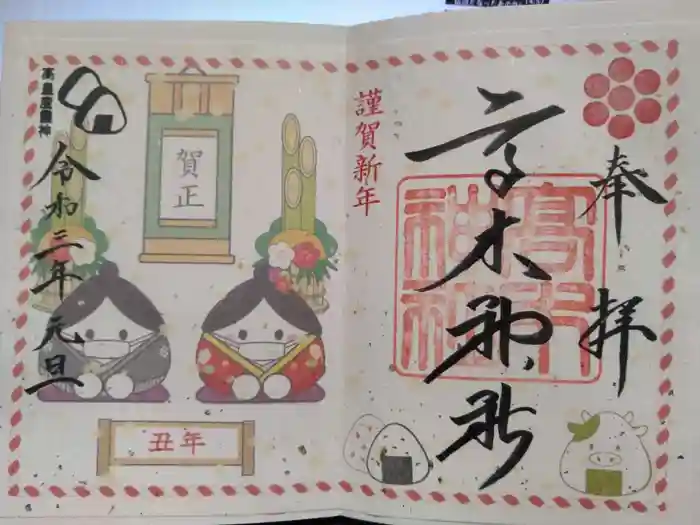 奉拝
高木神社
高木
神社
謹賀新年
賀正
丑年
高皇産靈神
令和三年元旦